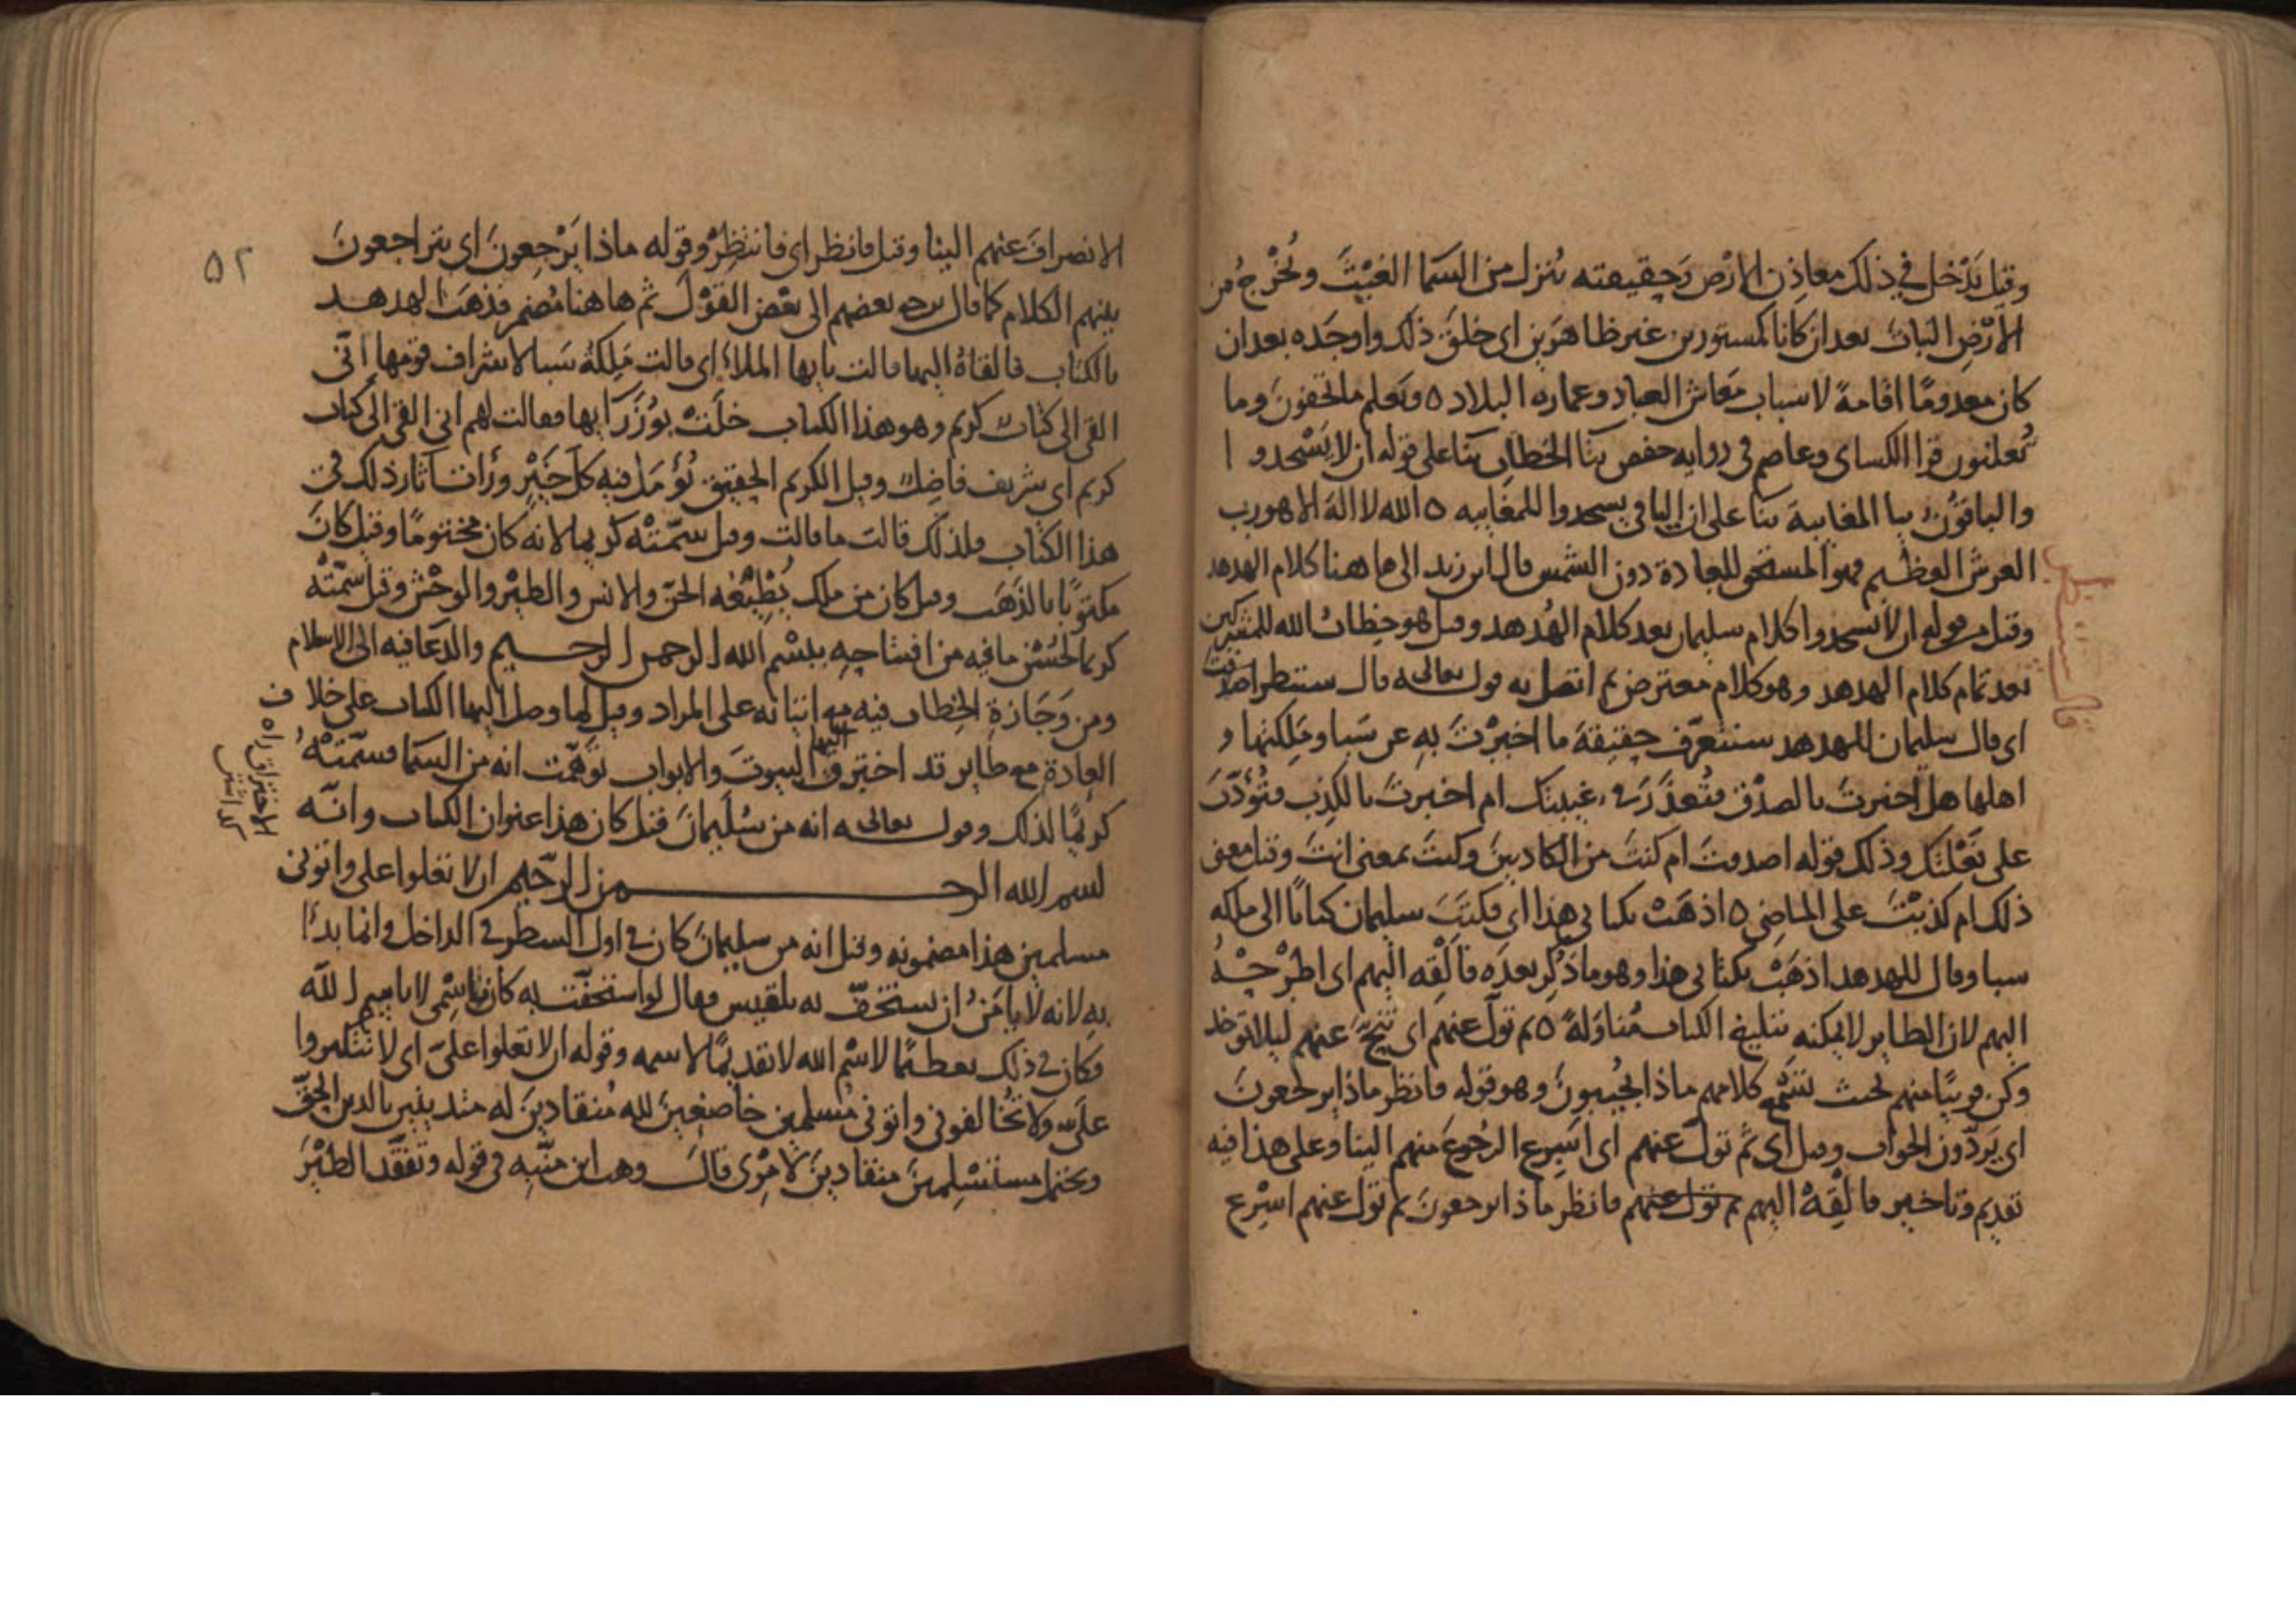 وقيل يدخل في ذلك معادن الارض وحقيقته ينزل من السما الغيث ويخرج من
الارض النبات بعد ان كانا كمستورين غير ظاهرين اي خلق ذلك واوجده بعد ان
كان معدوما اقامة لاسباب معاش العباد وعماره البلاد ٥ ويعلم ما تخفون وما
تعلنون قرا الكساي وعاصم في روايه حفص بتا الخطاب بنا على قوله ان لا يسجدوا
والباقون بيا المغايبة بنا على ان الباقي يسجدوا للمغايبه ٥ الله لا اله الا هو رب
العرش العظيم فهو المستحق للعبادة دون الشمس قال ابن زيد الى ها هنا كلام الهدهد
وقيل من قوله ان لا يسجدوا كلام سليمان بعد كلام الهدهد وقيل هو خطاب الله للمشركين
بعد تمام كلام الهدهد وهو كلام معترض ثم اتصل به قوله تعالى قال سننظر اصدقت
اي قال سليمان للهدهد سنتعرف حقيقة ما اخبرت به عن سبا وملكتها و
اهلها هل اخبرت بالصدق فتعذر في غيبتك ام اخبرت بالكذب فتؤدب
على فعلتك وذلك قوله اصدقت ام كنت من الكاذبين وكنت بمعنى انت وقيل معنى
ذلك ام كذبت على الماضي ٥ اذهب بكتابي هذا اي فكتب سليمان كتابا الى ملكه
سبا وقال للهدهد اذهب بكتابي هذا وهو ما ذكر بعده فالقه اليهم اي اطرحه
اليهم لان الطاير لا يمكنه تبليغ الكتاب مناولة ٥ ثم تول عنهم اي تنح عنهم ليلا توخذ
وكن قريبا منهم بحيث تسمع كلامهم ماذا يجيبون وهو قوله فانظر ماذا يرجعون
اي يردون الجواب وقيل اي ثم تول عنهم اي اسرع الرجوع منهم الينا وعلى هذا فيه
تقديم وتاخير فالقه اليهم ثم تول عنهم فانظر ماذا يرجعون ثم تول عنهم اسرع
قال سننظر
٥٢
الانصراف عنهم الينا وقيل فانظر اي فانتظر وقوله ماذا يرجعون اي يتراجعون
بينهم الكلام كما قال يرجع بعضهم الى بعض القول ثم ها هنا مضمر فذهب الهدهد
بالكتاب فالقاه اليها قالت يا يها الملاء اي قالت ملكة سبا لاشراف قومها اني
القي الي كتاب كريم وهو هذا الكتاب خلت بوزرايها فقالت لهم اني القي الي كتاب
كريم اي شريف فاضل وقيل الكريم الحقيق يؤمل فيه كل خير ورأت اثار ذلك في
هذا الكتاب فلذلك قالت ما قالت وقيل سمته كريما لانه كان مختوما وقيل كان
مكتوبا بالذهب وقيل كان من ملك يطيعه الجن والانس والطير والوحش وقيل سمته
كريما لحسن ما فيه من افتتاحه ببسم الله الرحمن الرحيم والدعا فيه الى الاسلام
ومن وجازة الخطاب فيه مع اتيانه على المراد وقيل لما وصل اليها الكتاب على خلاف
العادة مع طاير قد اخترق اليها البيوت والابواب توهمت انه من السما فسمته
كريما لذلك وقوله تعالى انه من سليمان قيل كان هذا عنوان الكتاب وانه
بسم الله الرحمن الرحيم ان لا تعلوا علي واتوني
مسلمين هذا مضمونه وقيل انه من سليمان كان في اول السطر في الداخل وانما بدا
به لانه لا يامن ان تستخف به بلقيس فقال لو استخفت به كان باسمي لا باسم الله
فكان في ذلك تعظيما لاسم الله لا تقديما لاسمه وقوله ان لا تعلوا علي اي لا تتكبروا
علي ولا تخالفوني واتوني مسلمين خاضعين لله منقادين له متدينين بالدين الحق
ويحتمل مستسلمين منقادين لامري قال وهب ابن منبه في قوله وتفقد الطير
الاختراق راه